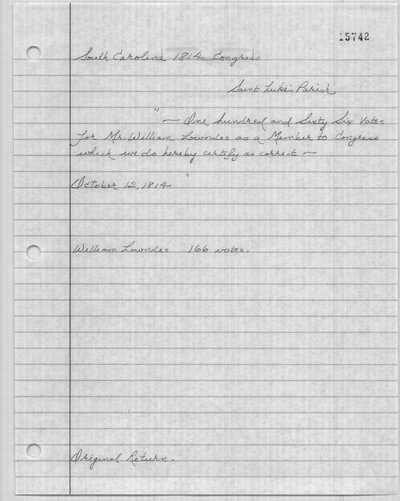 15742
South Carolina 1814 Congress
Saint Luke's Parish
" — One hundred and Sixty Six Votes
for Mr. William Lowndes as a Member to Congress
which we do hereby certify as correct —
October 12, 1814 "
William Lowndes 166 votes.
Original Return.